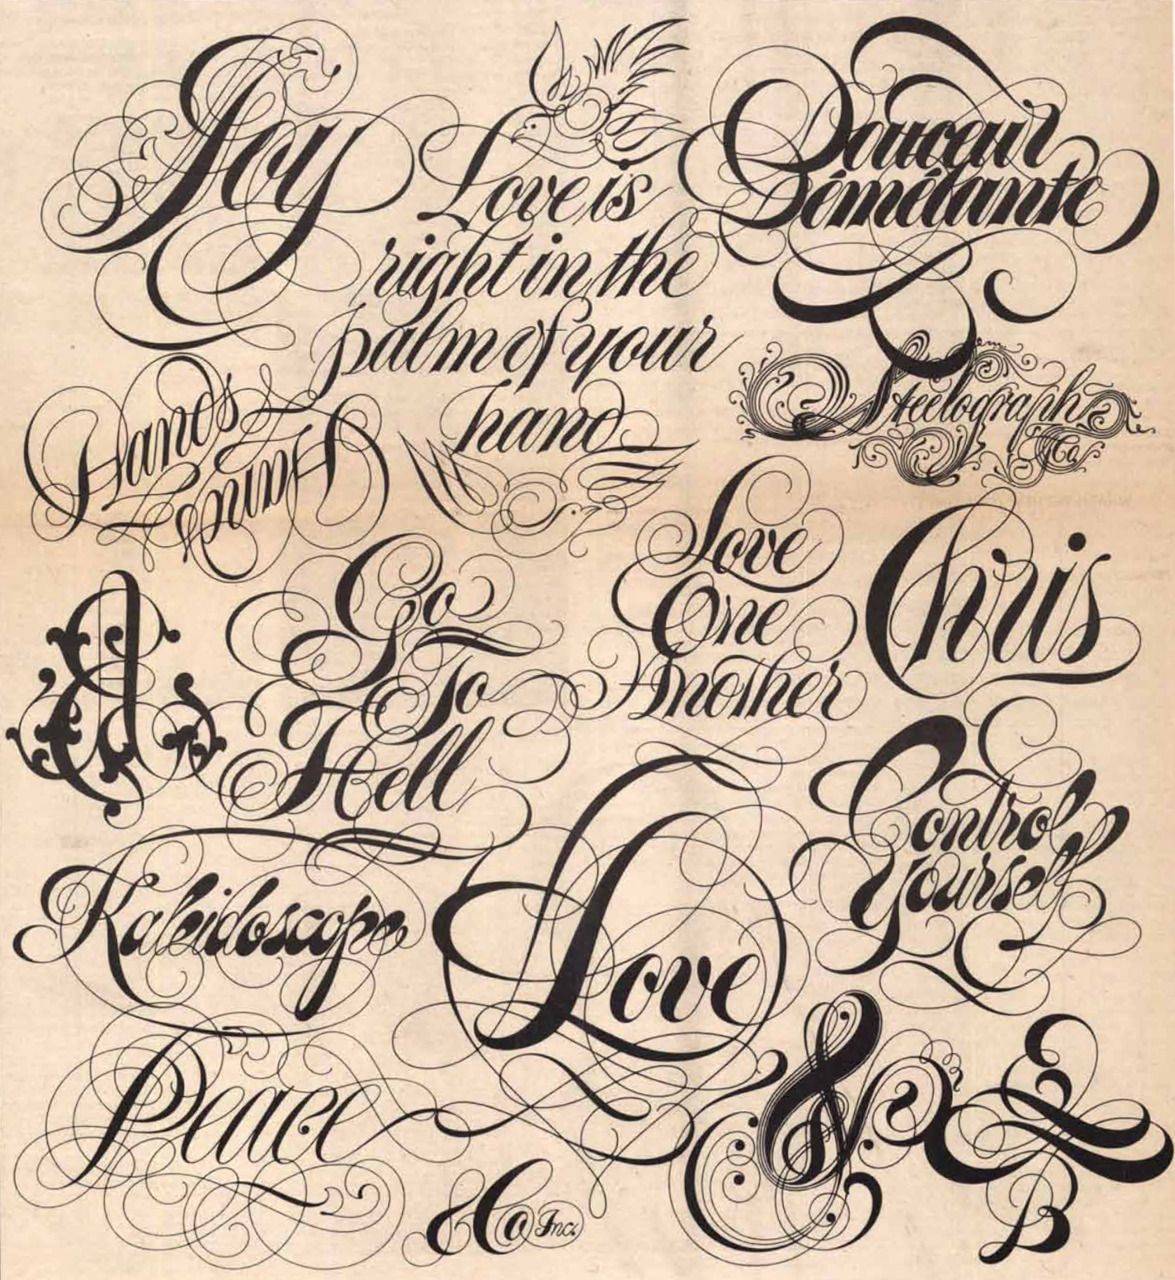 Joy
Love is
right in the
palm of your
hand
Douceur
Démélante
Hands
Hands
Steelograph
Co.
Go
To
Hell
Love
One
Another
Chris
Control
Yourself
Kaleidoscope
Love
Peace
& Co Inc.
B